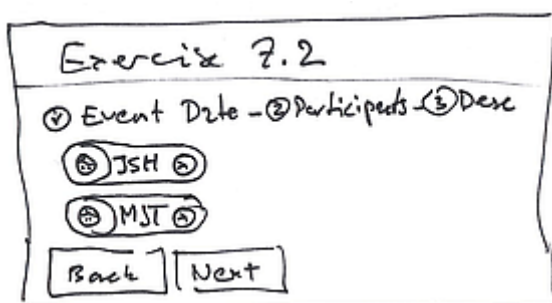 Exercise 7.2
✓ Event Date - ② Participants - ③ Desc
JSH
MJT
Back Next